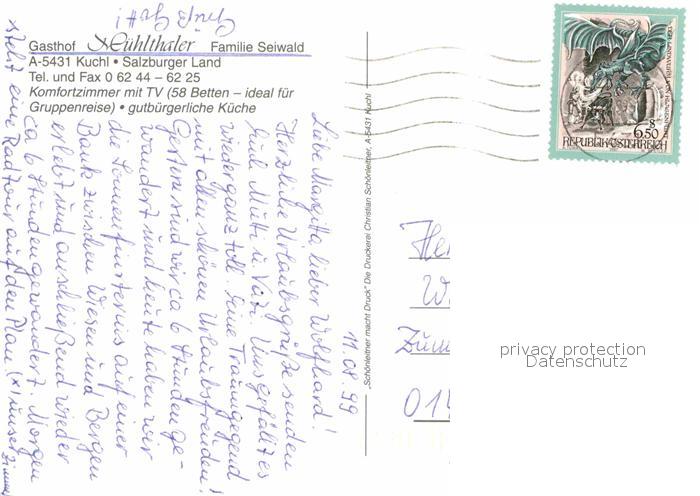 Grüß Gott!
Gasthof Mühlthaler Familie Seiwald
A-5431 Kuchl • Salzburger Land
Tel. und Fax 0 62 44 – 62 25
Komfortzimmer mit TV (58 Betten – ideal für
Gruppenreise) • gutbürgerliche Küche
11.08.99
Liebe Margitta, lieber Wolfhard!
Herzliche Urlaubsgrüße senden
Euch Mutti u. Vati. Uns gefällt es
wieder ganz toll. Eine Traumgegend
mit allen schönen Urlaubsfreuden!
Gestern sind wir ca 6 Stunden ge-
wandert und heute haben wir
die Sonnenfinsternis auf einer
Bank zwischen Wiesen und Bergen
erlebt und anschließend wieder
ca 6 Stunden gewandert. Morgen
steht eine Radtour auf dem Plan. (x) unser
Zimmer
„Schönleitner macht Druck" Die Druckerei Christian Schönleitner, A-5431 Kuchl
8
6.50
REPUBLIK ÖSTERREICH
He
W
Zum
01
privacy protection
Datenschutz